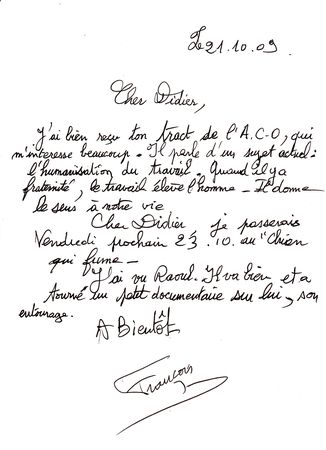 Le 21.10.09
Cher Didier,
J'ai bien reçu ton tract de l'A.C-O, qui
m'interesse beaucoup. Il parle d'un sujet actuel:
l'humanisation du travail. Quand il y a
fraternité, le travail élève l'homme - Il donne
le sens à notre vie
Cher Didier je passerais
Vendredi prochain 23.10. au "Chien
qui fume -
J'ai vu Raoul. Il va bien et a
tourné un petit documentaire sur lui, son
entourage.
A Bientôt
François